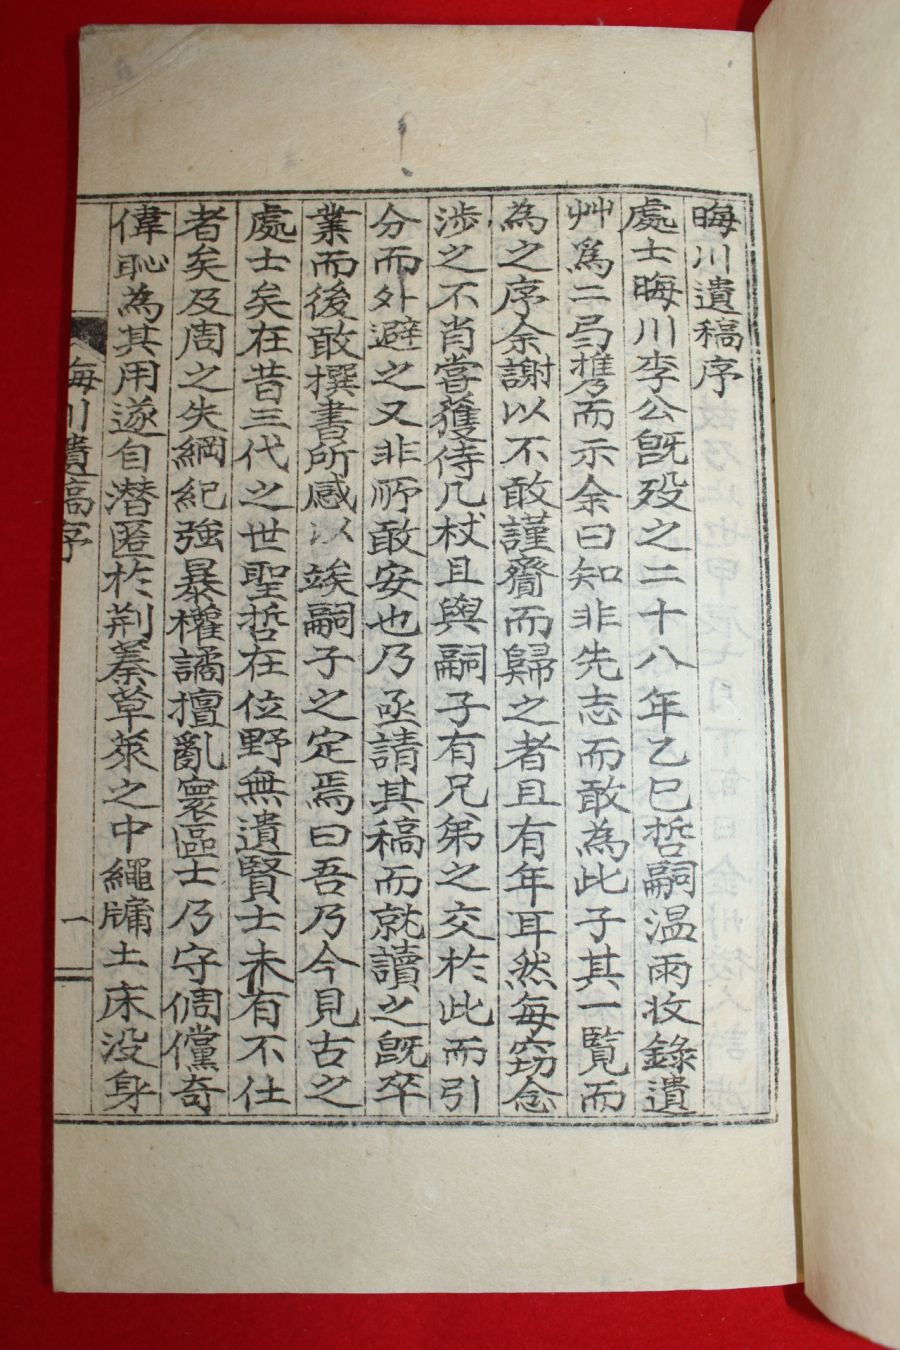 晦川遺稿序
處士晦川李公旣殁之二十八年乙巳哲嗣温雨收錄遺
艸爲二弓携而示余曰知非先志而敢為此子其一覽而
為之序余謝以不敢謹齎而歸之者且有年耳然每窃念
渉之不肖嘗獲侍几杖且與嗣子有兄弟之交於此而引
分而外避之又非所敢安也乃亟請其稿而就讀之旣卒
業而後敢撰書所感以竢嗣子之定焉曰吾乃今見古之
處士矣在昔三代之世聖哲在位野無遺賢士未有不仕
者矣及周之失綱紀強暴權譎擅亂寰區士乃守倜儻奇
偉恥為其用遂自潜匿於荆蓁草萊之中繩牗土床没身
晦川遺稿序
一